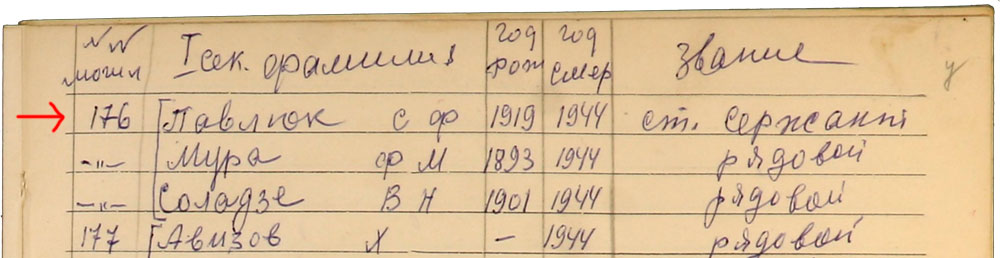 NN могил I сек. фамилия год рож год смер звание у
176 Павлюк С Ф 1919 1944 ст. сержант
-"- Мура Ф М 1893 1944 рядовой
-"- Соладзе В Н 1901 1944 рядовой
177 Авизов Х - 1944 рядовой